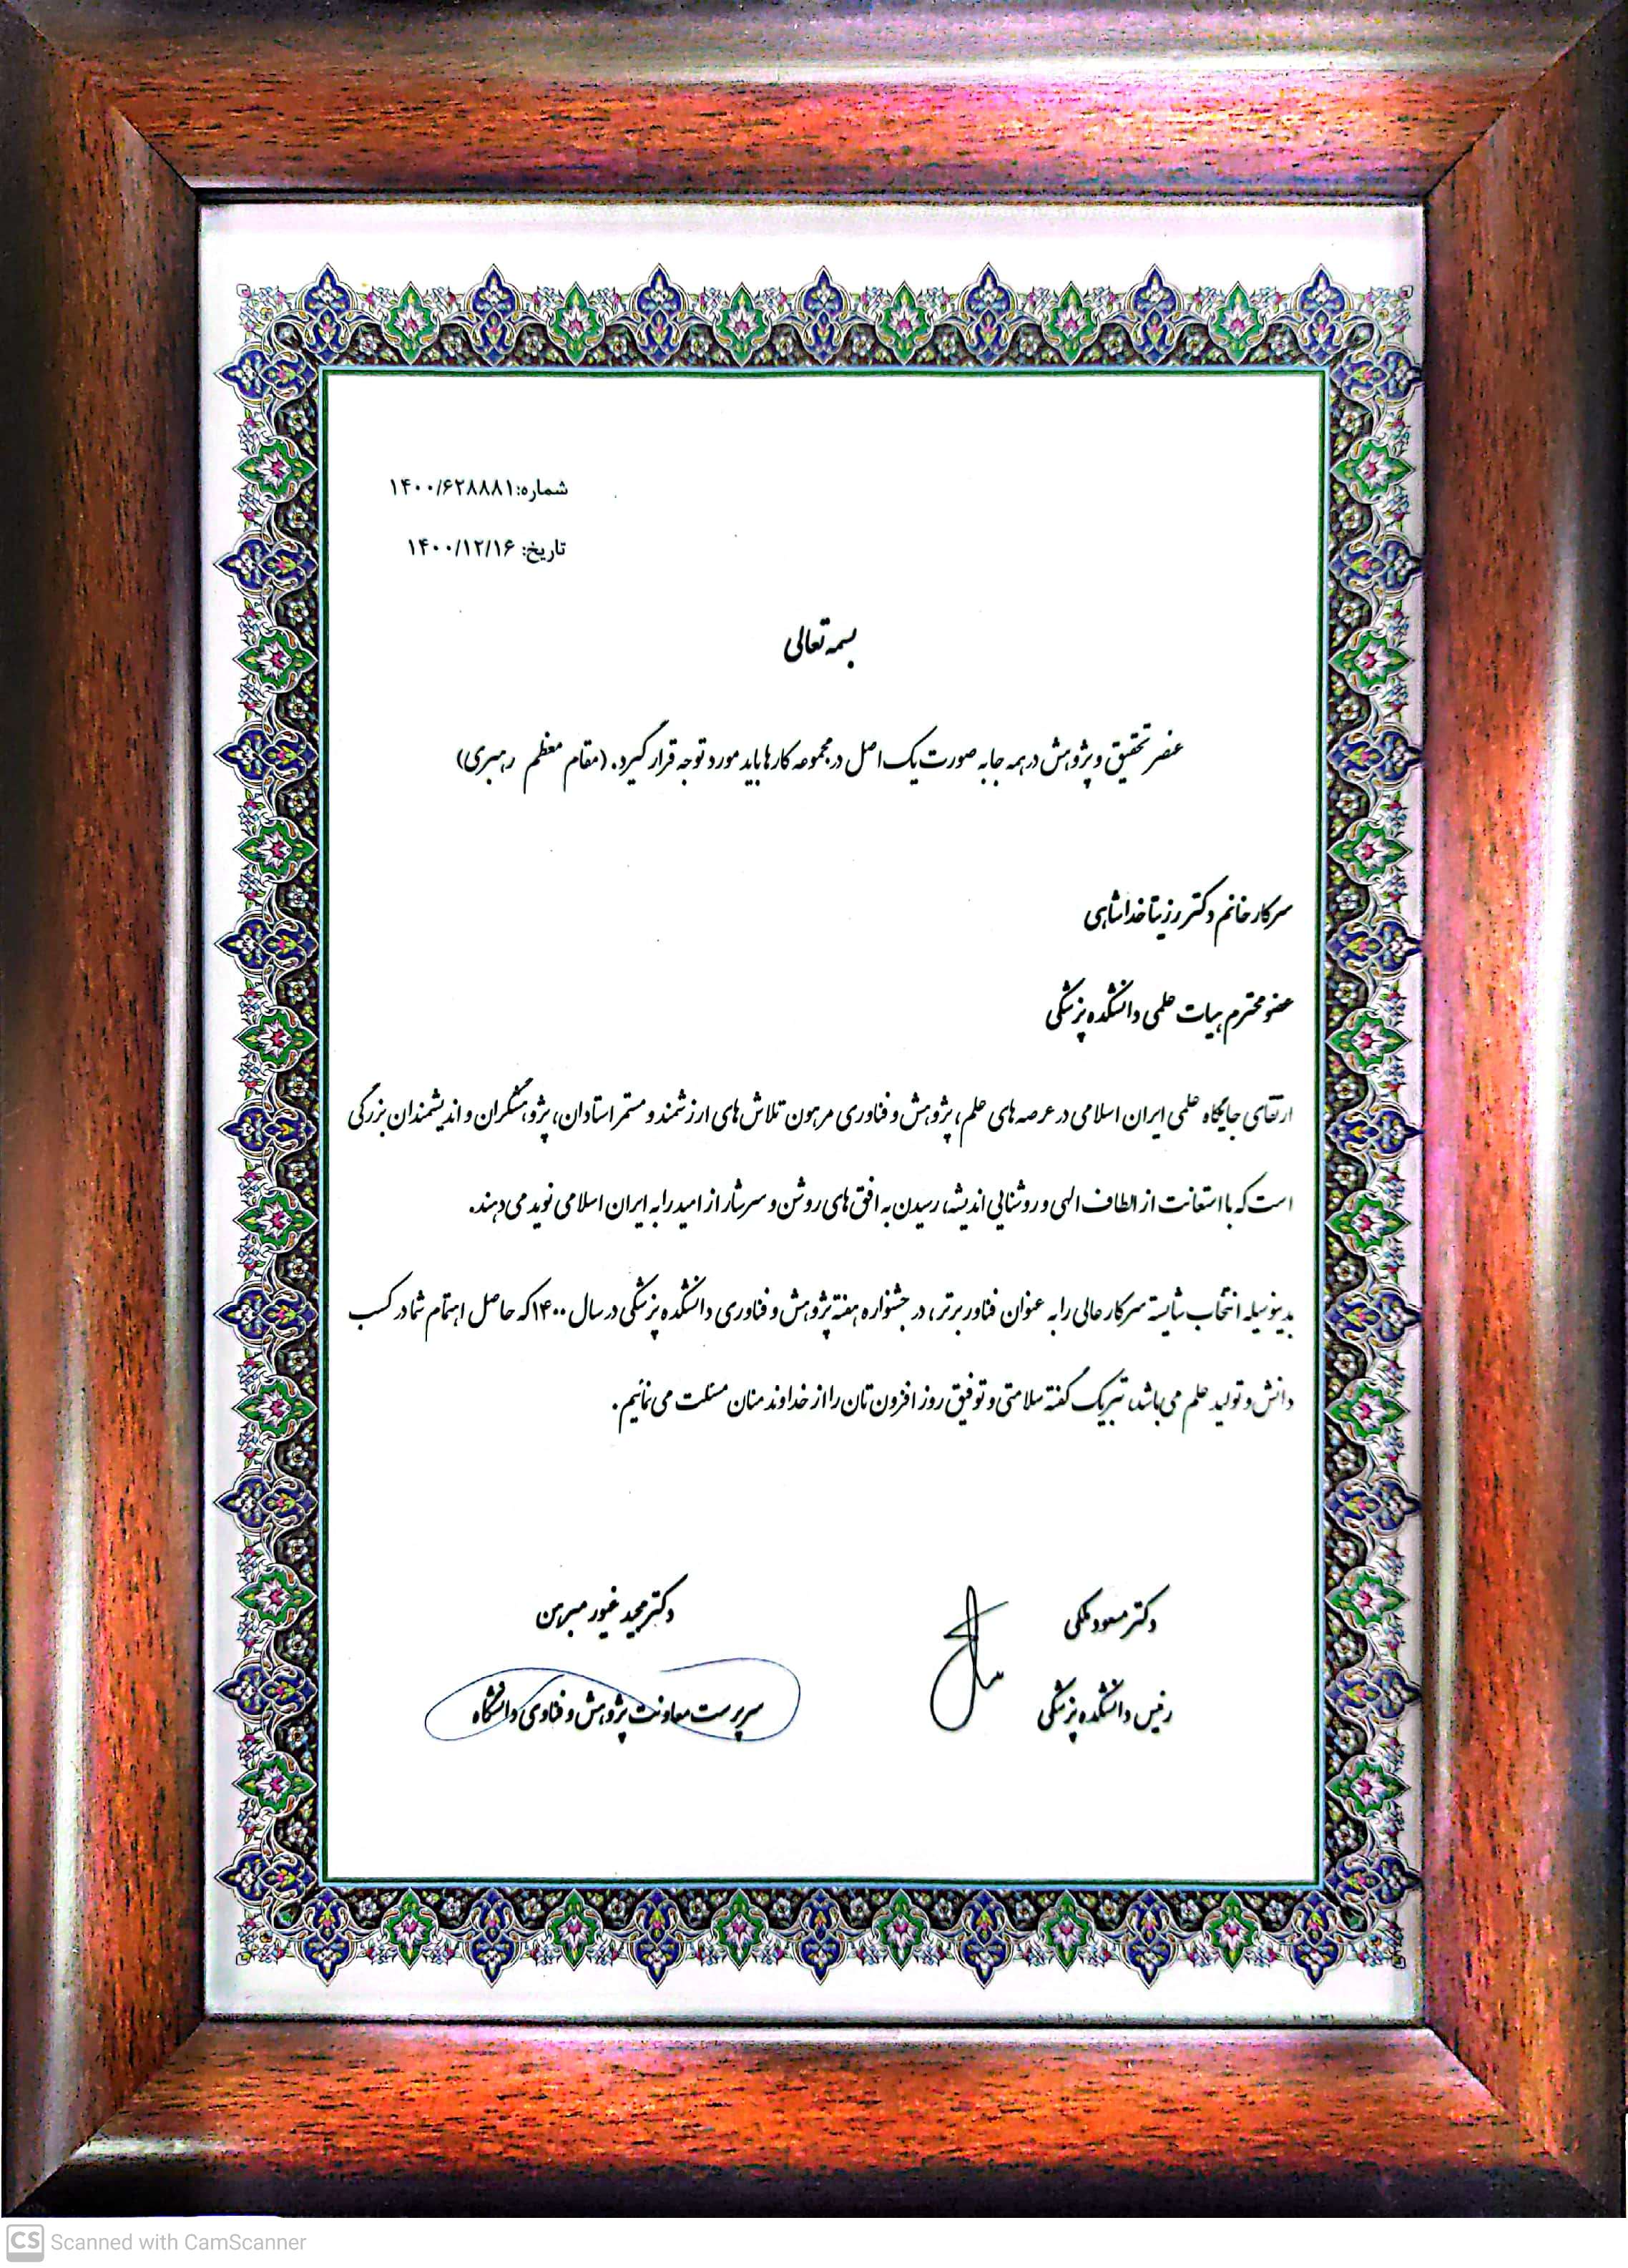 شماره: ۱۴۰۰/۶۲۸۸۸۱
تاریخ: ۱۴۰۰/۱۲/۱۶
بسمه تعالی
عنصر تحقیق و پژوهش در همه جا به صورت یک اصل در مجموعه کارها باید مورد توجه قرار گیرد. (مقام معظم رهبری)
سرکار خانم دکتر رزیتا خداشاهی
عضو محترم هیات علمی دانشکده پزشکی
ارتقای جایگاه علمی ایران اسلامی در عرصه های علم، پژوهش و فناوری مرهون تلاش های ارزشمند و مستمر استادان، پژوهشگران و اندیشمندان بزرگی
است که با استعانت از الطاف الهی و روشنایی اندیشه، رسیدن به افق های روشن و سرشار از امید را به ایران اسلامی نوید می دهند.
بدینوسیله انتخاب شایسته سرکار عالی را به عنوان فناور برتر، در جشنواره هفته پژوهش و فناوری دانشکده پزشکی در سال ۱۴۰۰ که حاصل اهتمام شما در کسب
دانش و تولید علم می باشد، تبریک گفته سلامتی و توفیق روز افزون تان را از خداوند منان مسئلت می نمائیم.
دکتر مسعود ملکی
رئیس دانشکده پزشکی
دکتر مجید غیور مبرهن
سرپرست معاونت پژوهش و فناوری دانشگاه
CS Scanned with CamScanner